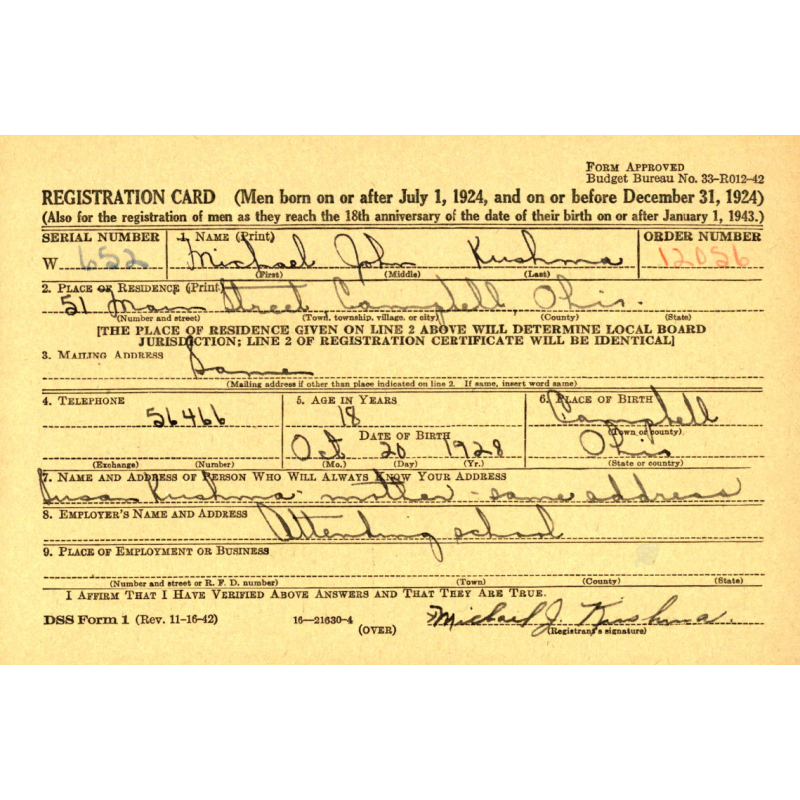 FORM APPROVED
Budget Bureau No. 33-R012-42
REGISTRATION CARD (Men born on or after July 1, 1924, and on or before December 31, 1924)
(Also for the registration of men as they reach the 18th anniversary of the date of their birth on or after January 1, 1943.)
SERIAL NUMBER 1. NAME (Print) ORDER NUMBER
W 652 Michael John Kushma 12056
(First) (Middle) (Last)
2. PLACE OF RESIDENCE (Print)
51 Street, Campbell, Ohio.
(Number and street) (Town, township, village, or city) (County) (State)
[THE PLACE OF RESIDENCE GIVEN ON LINE 2 ABOVE WILL DETERMINE LOCAL BOARD
JURISDICTION; LINE 2 OF REGISTRATION CERTIFICATE WILL BE IDENTICAL]
3. MAILING ADDRESS
Same
(Mailing address if other than place indicated on line 2. If same, insert word same)
4. TELEPHONE 5. AGE IN YEARS 6. PLACE OF BIRTH
56466 18 Campbell
DATE OF BIRTH (Town or county)
Oct 20 1928 Ohio
(Exchange) (Number) (Mo.) (Day) (Yr.) (State or country)
7. NAME AND ADDRESS OF PERSON WHO WILL ALWAYS KNOW YOUR ADDRESS
Susan Kushma - mother - same address
8. EMPLOYER'S NAME AND ADDRESS
Attending school
9. PLACE OF EMPLOYMENT OR BUSINESS
(Number and street or R. F. D. number) (Town) (County) (State)
I AFFIRM THAT I HAVE VERIFIED ABOVE ANSWERS AND THAT THEY ARE TRUE.
DSS Form 1 (Rev. 11-16-42) 16—21630-4 Michael J. Kushma.
(OVER) (Registrant's signature)